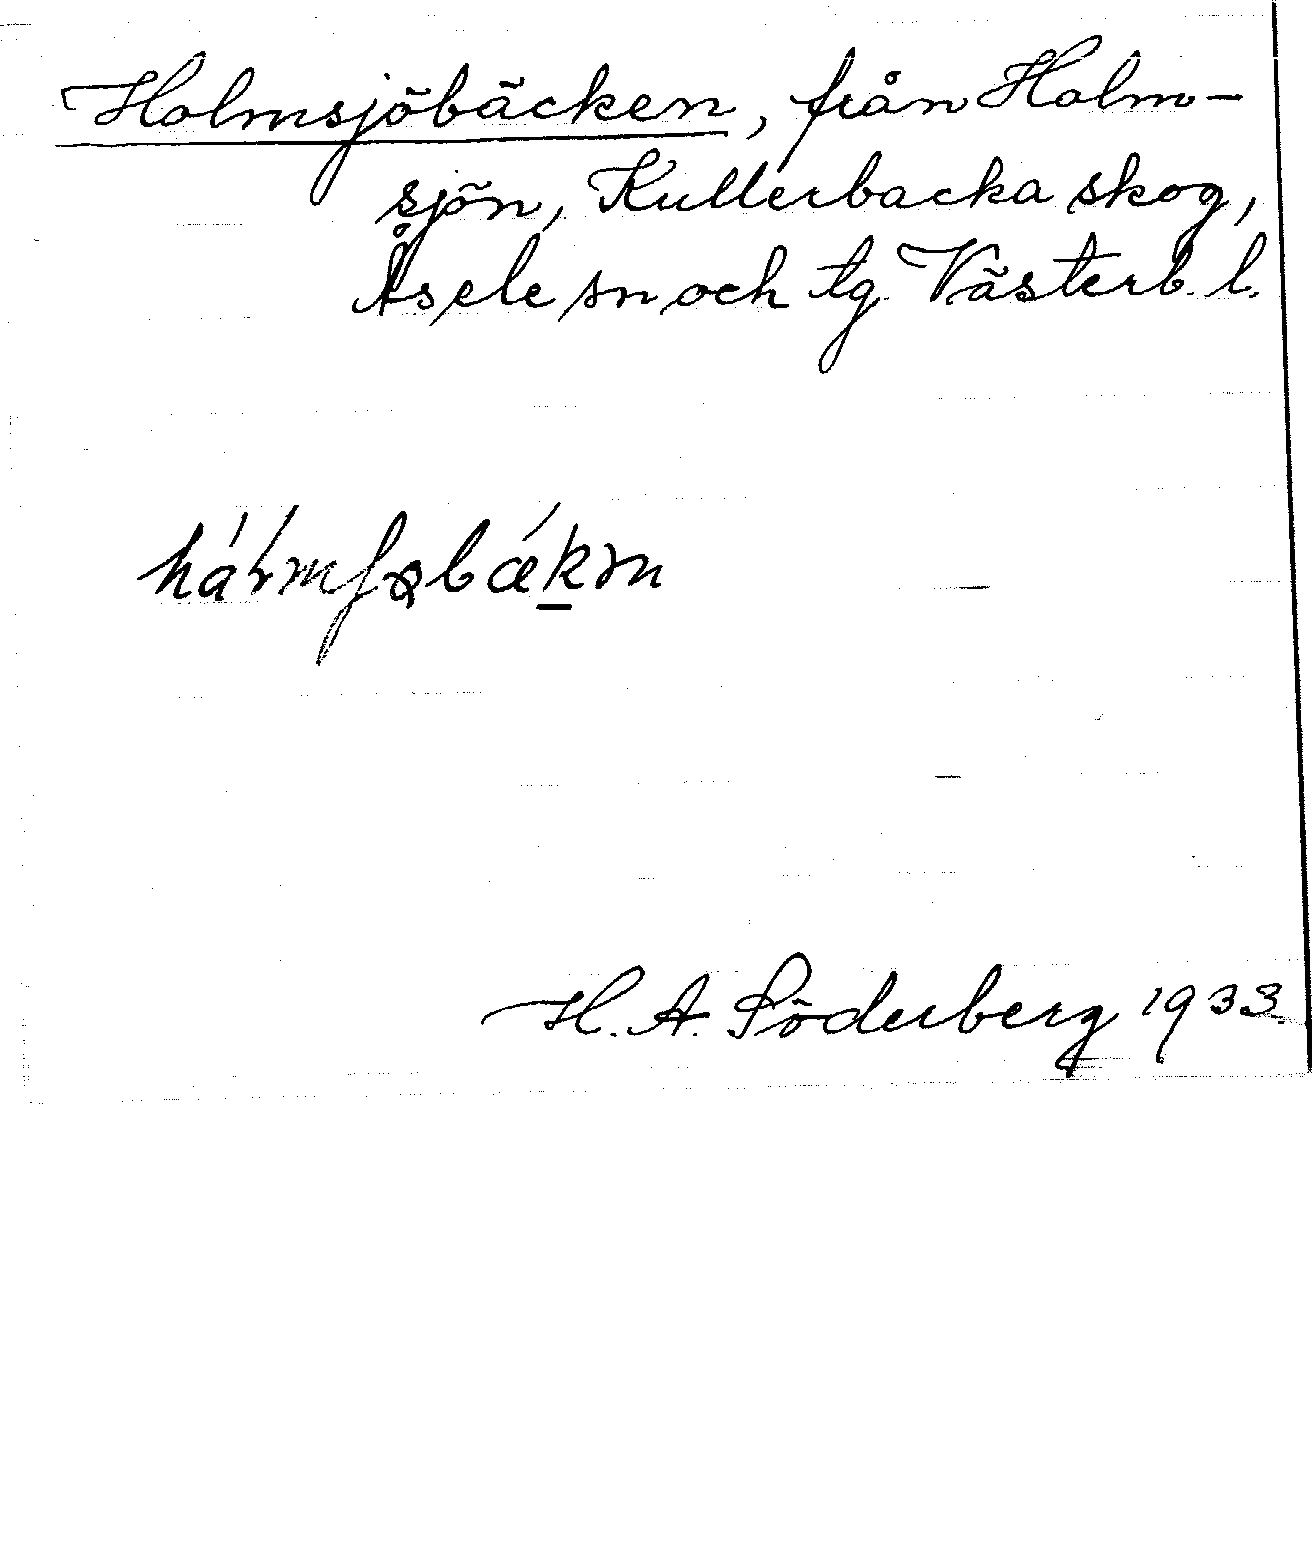 Holmsjöbäcken, från Holm-
sjön, Kullerbacka skog,
Åsele sn och tg. Västerb. l.
H. A. Söderberg 1933.